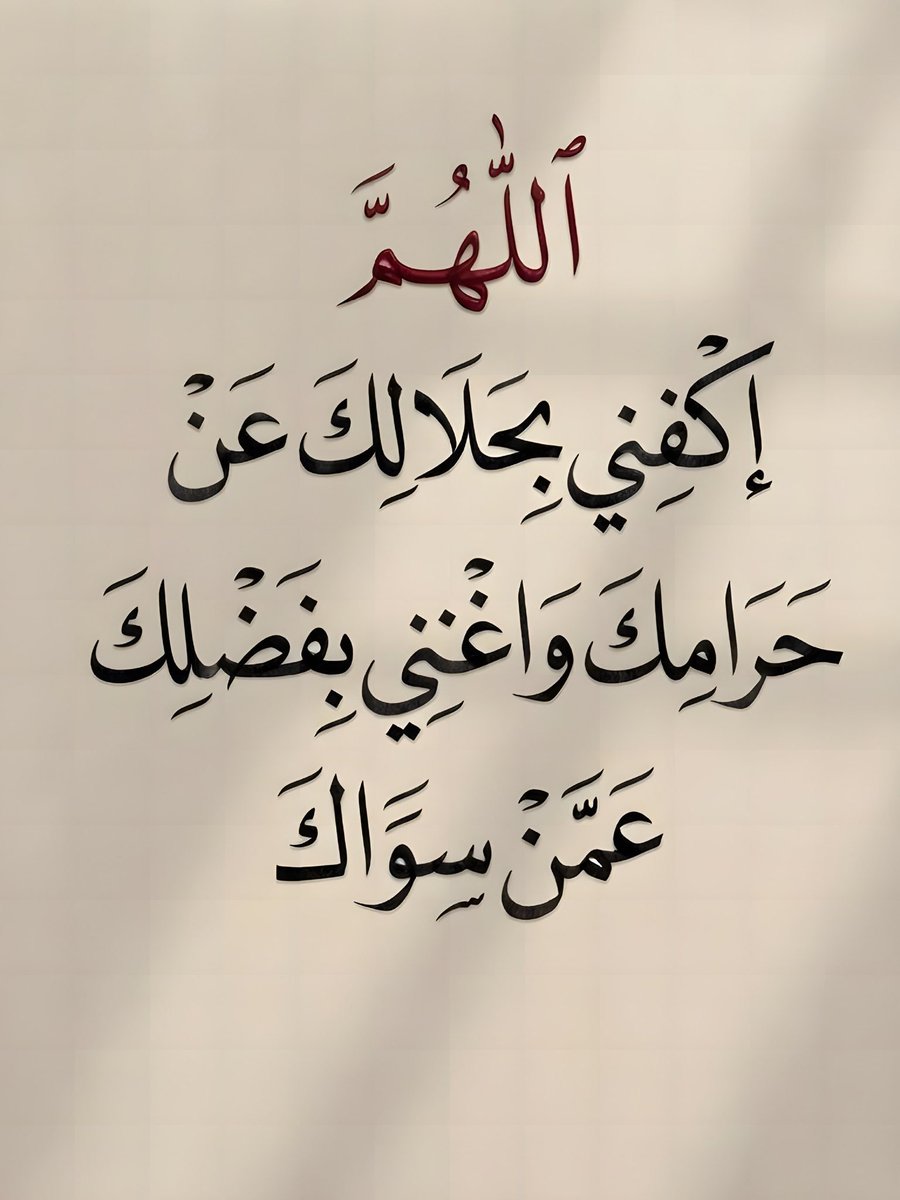 ٱللّٰهُمَّ
إكْفِني بِحَلَالِكَ عَنْ
حَرَامِكَ وَاغْنِني بِفَضْلِكَ
عَمَّنْ سِوَاكَ